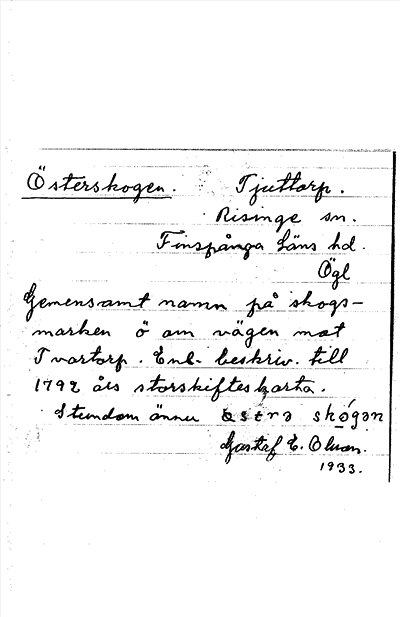 Österskogen. Tjuttorp.
Risinge sn.
Finspånga Läns hd.
Ögl
Gemensamt namn på skogs-
marken ö om vägen mot
Tvartorp. Enl. beskriv. till
1792 års storskifteskarta.
Stundom ännu
Gustaf E. Olsson.
1933.